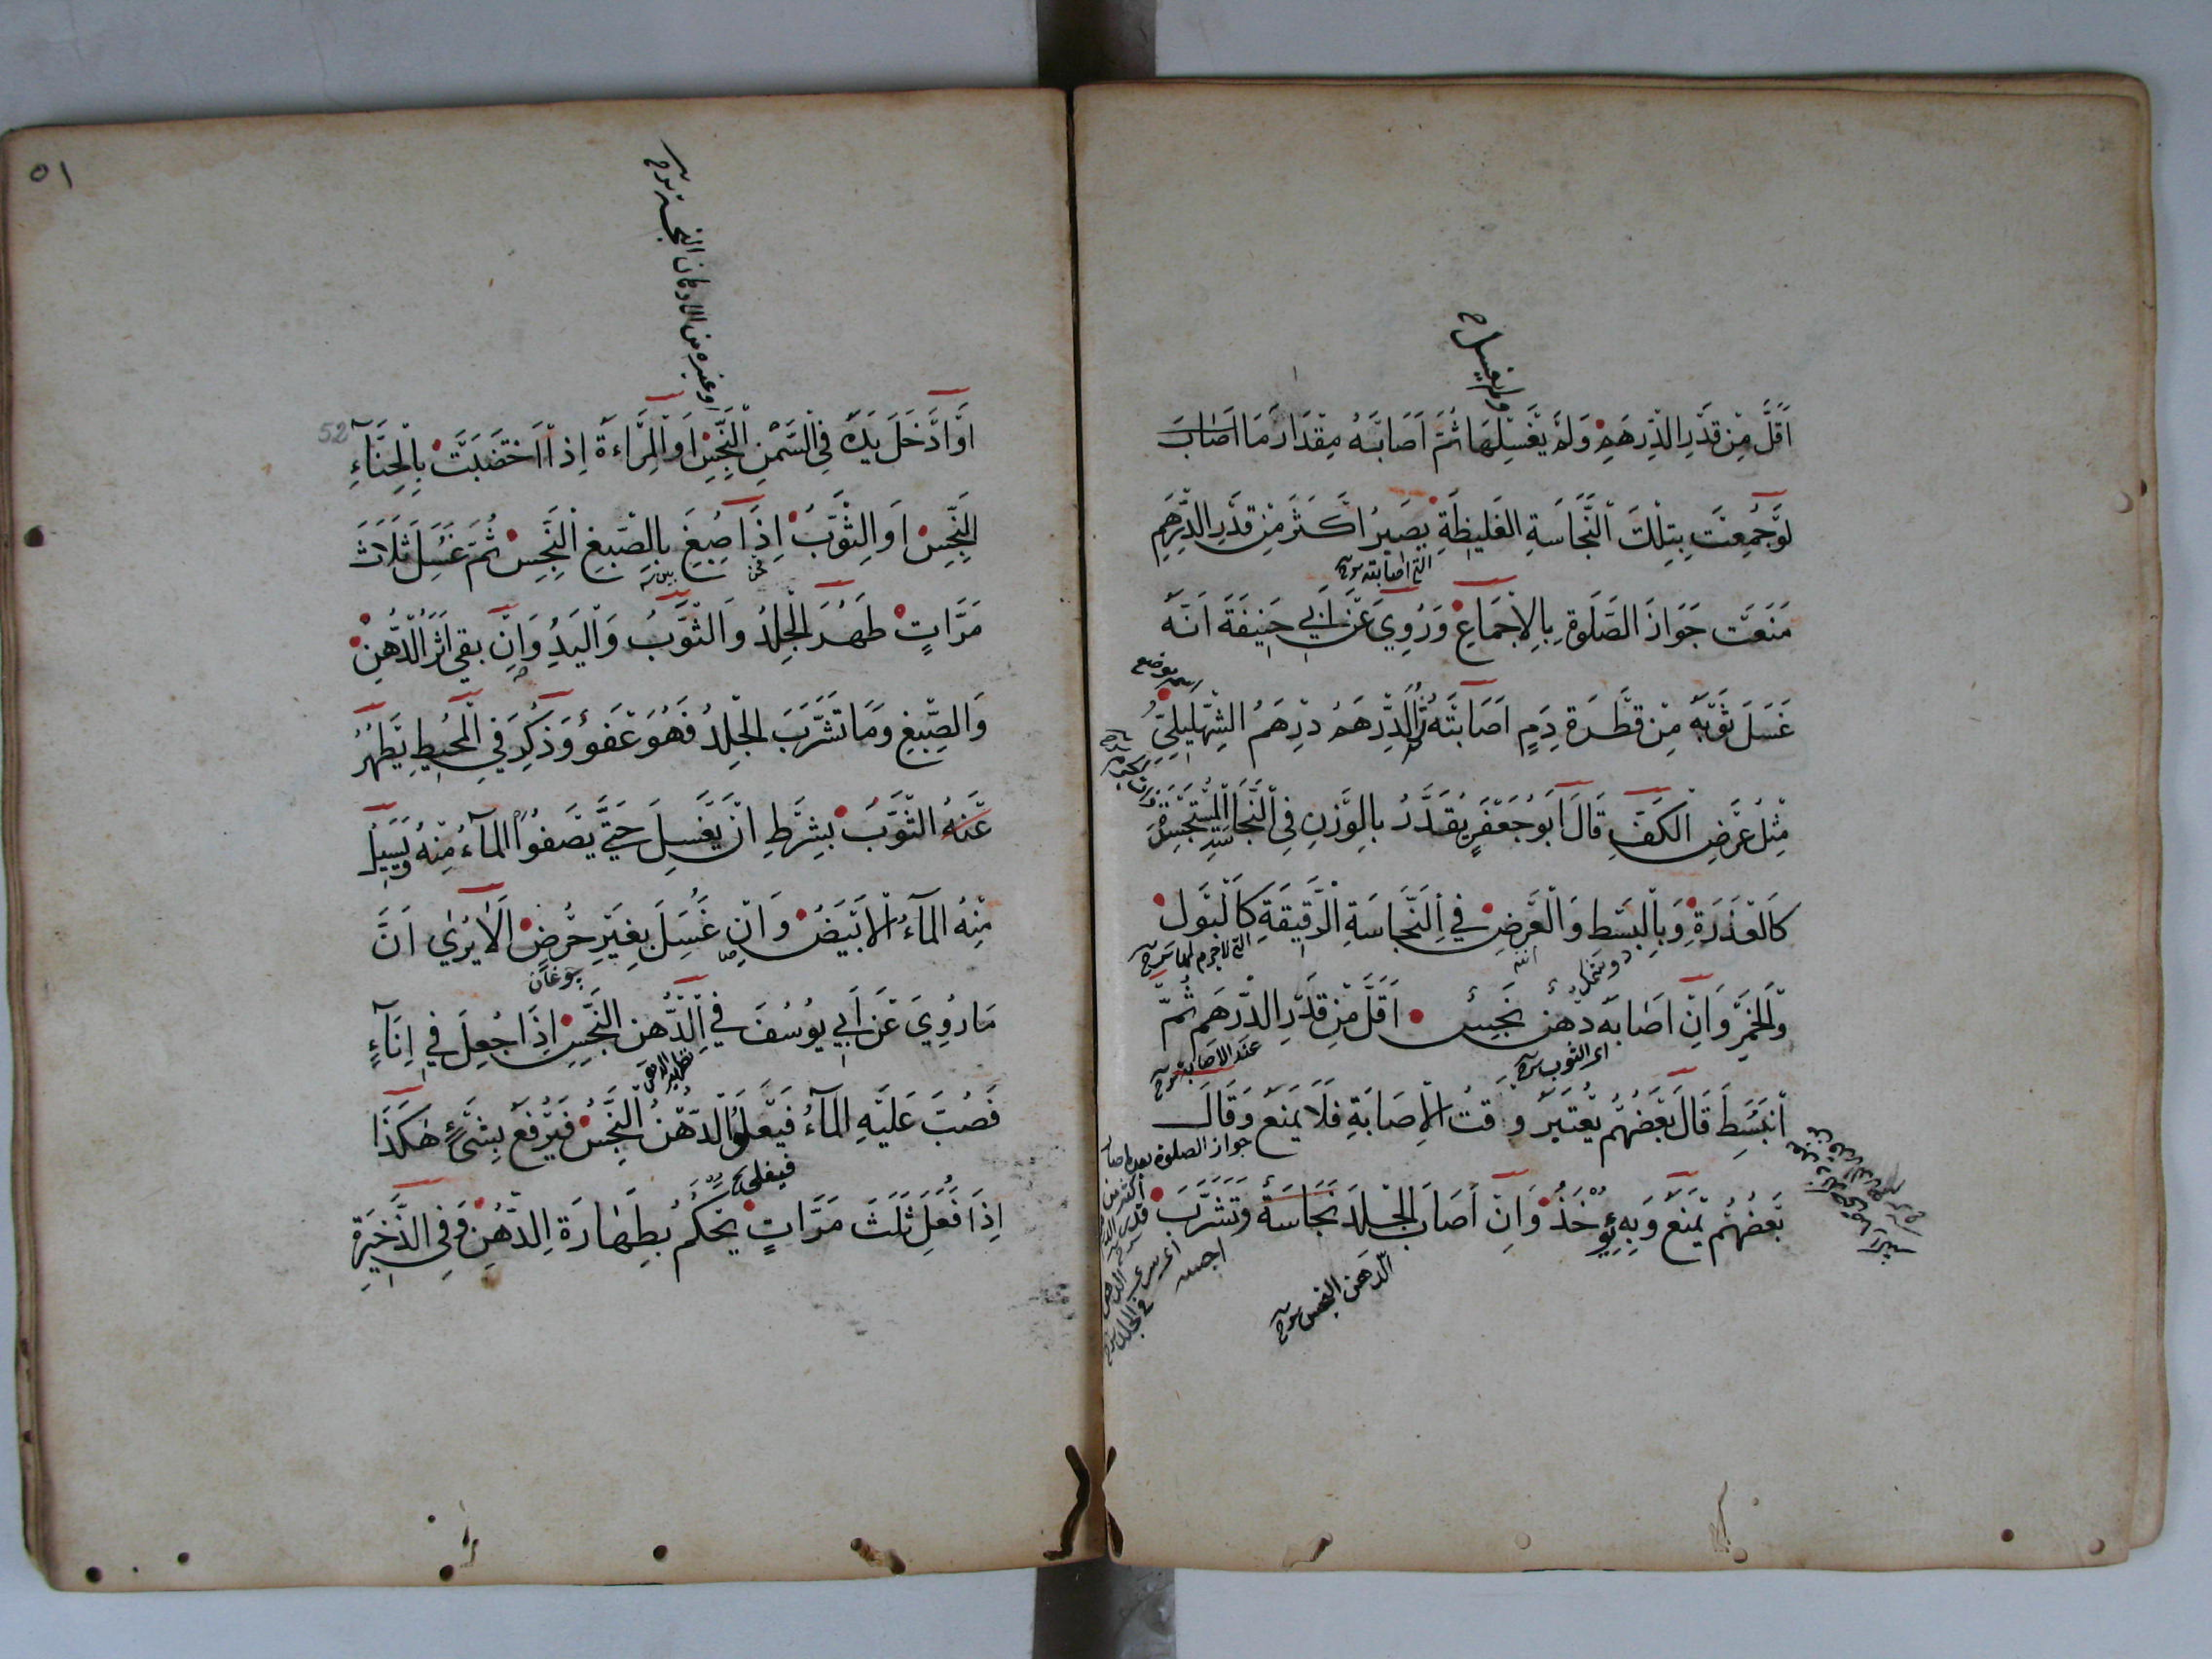 اَقَلَّ مِنْ قَدْرِ الدِّرْهَمِ وَلَمْ يَغْسِلْهَا ثُمَّ اَصَابَهُ مِقْدَارَ مَا اَصَابَ
لَوْ جُمِعَتْ بِتِلْكَ النَّجَاسَةِ الغَلِيظَةِ يَصِيرُ اَكْثَرَ مِنْ قَدْرِ الدِّرْهَمِ
التى اصابته
مَنَعَتْ جَوَازَ الصَّلَوةِ بِالْاِجْمَاعِ وَرُوِيَ عَنْ اَبِي حَنِيفَةَ اَنَّهُ
غَسَلَ ثَوْبَهُ مِنْ قَطْرَةِ دَمٍ اَصَابَتْهُ ثُمَّ الدِّرْهَمُ دِرْهَمُ الشِّهْلِيلِيِّ
مِثْلُ عَرْضِ الْكَفِّ قَالَ اَبُو جَعْفَرٍ يُقَدَّرُ بِالْوَزْنِ فِي النَّجَاسَةِ الْمُسْتَجْسِدَةِ
كَالْعَذِرَةِ وَبِالْبَسْطِ وَالْعَرْضِ فِي النَّجَاسَةِ الرَّقِيقَةِ كَالْبَوْلِ
التى لاجرم لها
وَالْخَمْرِ وَاِنْ اَصَابَهُ دُهْنٌ نَجِسٌ اَقَلَّ مِنْ قَدْرِ الدِّرْهَمِ ثُمَّ
اى الثوب
عند الاصابة
اَنْبَسَطَ قَالَ بَعْضُهُمْ يُعْتَبَرُ وَقْتُ الْاِصَابَةِ فَلَا يَمْنَعُ وَقَالَ
جواز الصلوة
بَعْضُهُمْ يَمْنَعُ وَبِهِ يُؤْخَذُ وَاِنْ اَصَابَ الْجِلْدَ نَجَاسَةٌ وَتَشَرَّبَ
الدهن النجس
٥١
او غيره من الادهان النجسة
52
اَوْ اَدْخَلَ يَدَهُ فِي السَّمْنِ النَّجِسِ اَوِ الْمَرْاءَةُ اِذَا اخْتَضَبَتْ بِالْحِنَّاءِ
النَّجِسِ اَوِ الثَّوْبُ اِذَا صُبِغَ بِالصِّبْغِ النَّجِسِ ثُمَّ غُسِلَ ثَلَاثَ
مَرَّاتٍ طَهُرَ الْجِلْدُ وَالثَّوْبُ وَالْيَدُ وَاِنْ بَقِيَ اَثَرُ الدُّهْنِ
وَالصِّبْغِ وَمَا تَشَرَّبَ الْجِلْدُ فَهُوَ عَفْوٌ وَذُكِرَ فِي الْمُحِيطِ يَطْهُرُ
عَنْهُ الثَّوْبُ بِشَرْطِ اَنْ يُغْسَلَ حَتَّى يَصْفُوَ الْمَاءُ مِنْهُ وَيَسِيلُ
مِنْهُ الْمَاءُ الْاَبْيَضُ وَاِنْ غُسِلَ بِغَيْرِ حُرُضٍ اَلَا يُرٰى اَنَّ
چوغان
مَا رُوِيَ عَنْ اَبِي يُوسُفَ فِي الدُّهْنِ النَّجِسِ اِذَا جُعِلَ فِي اِنَاءٍ
فَصُبَّ عَلَيْهِ الْمَاءُ فَيَعْلُو الدُّهْنُ النَّجِسُ فَيُرْفَعُ بِشَيْءٍ هٰكَذَا
اِذَا فُعِلَ ثَلٰثَ مَرَّاتٍ يُحْكَمُ بِطَهَارَةِ الدُّهْنِ وَفِي الذَّخِيرَةِ